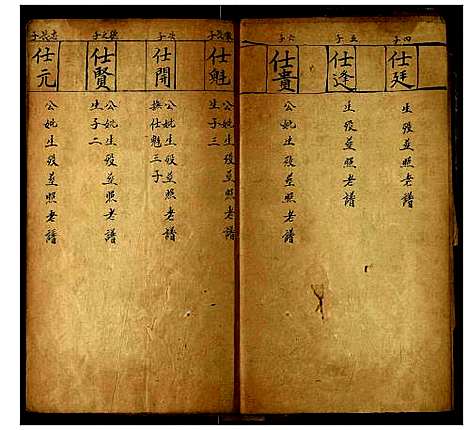 四子
仕廷
生殁並照老譜
五子
仕逢
生殁並照老譜
六子
仕貴
公妣生殁並照老譜
長子
仕魁
公妣生殁並照老譜
生子三
次子
仕開
公妣生殁並照老譜
撫仕魁三子
之子
仕賢
公妣生殁並照老譜
生子二
長子
仕元
公妣生殁並照老譜